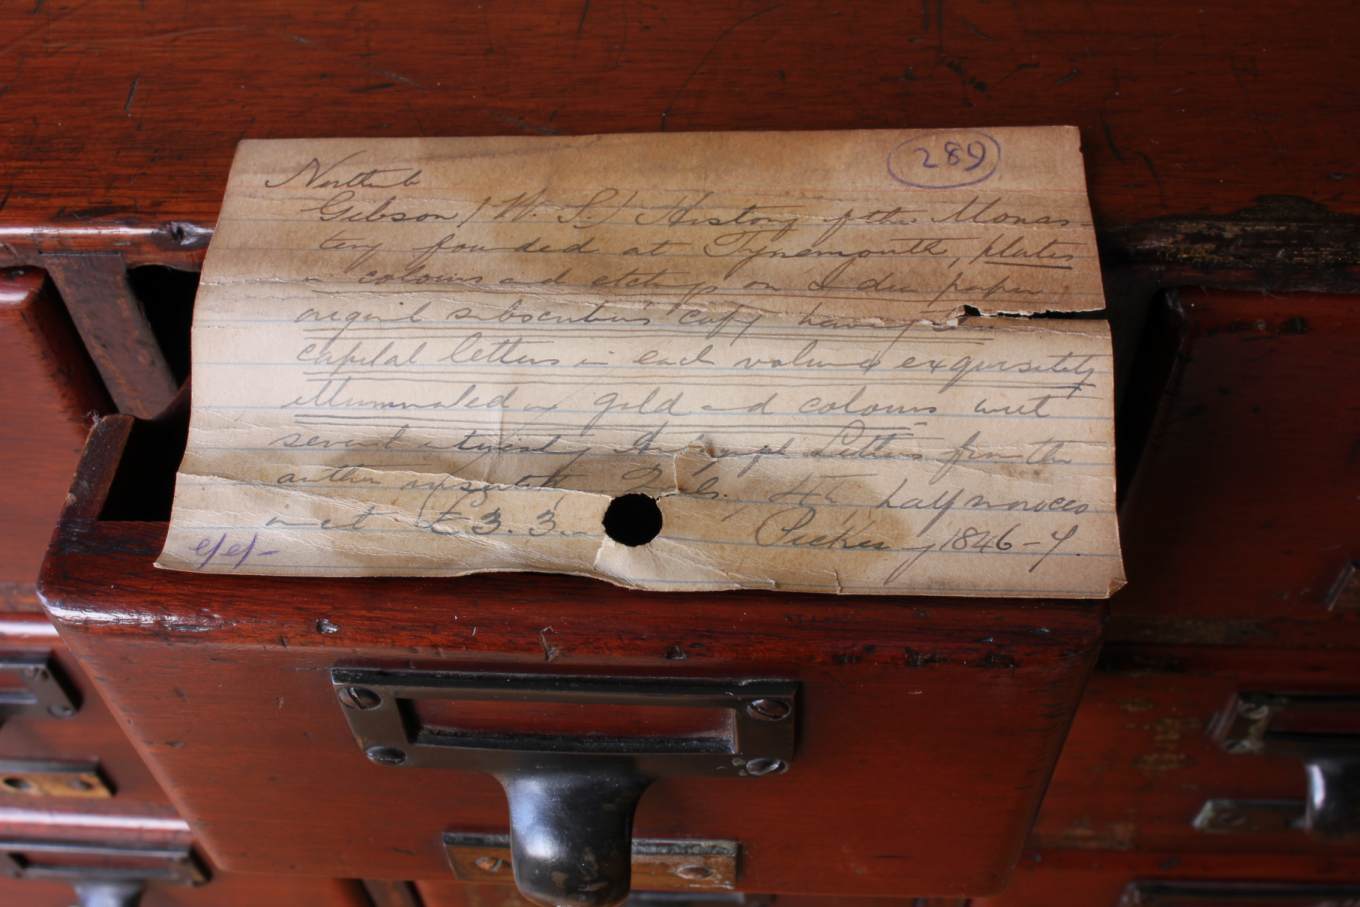 289
Northb
Gibson (W. S.) History of the Monas
tery founded at Tynemouth, plates
in colours and etchings on india paper
original subscriber's copy having the
capital letters in each volume exquisitely
illuminated in gold and colours with
several Autograph Letters from the
author inserted, 2 vols. 4to half morocco
£3. 3. Pickering 1846-7.